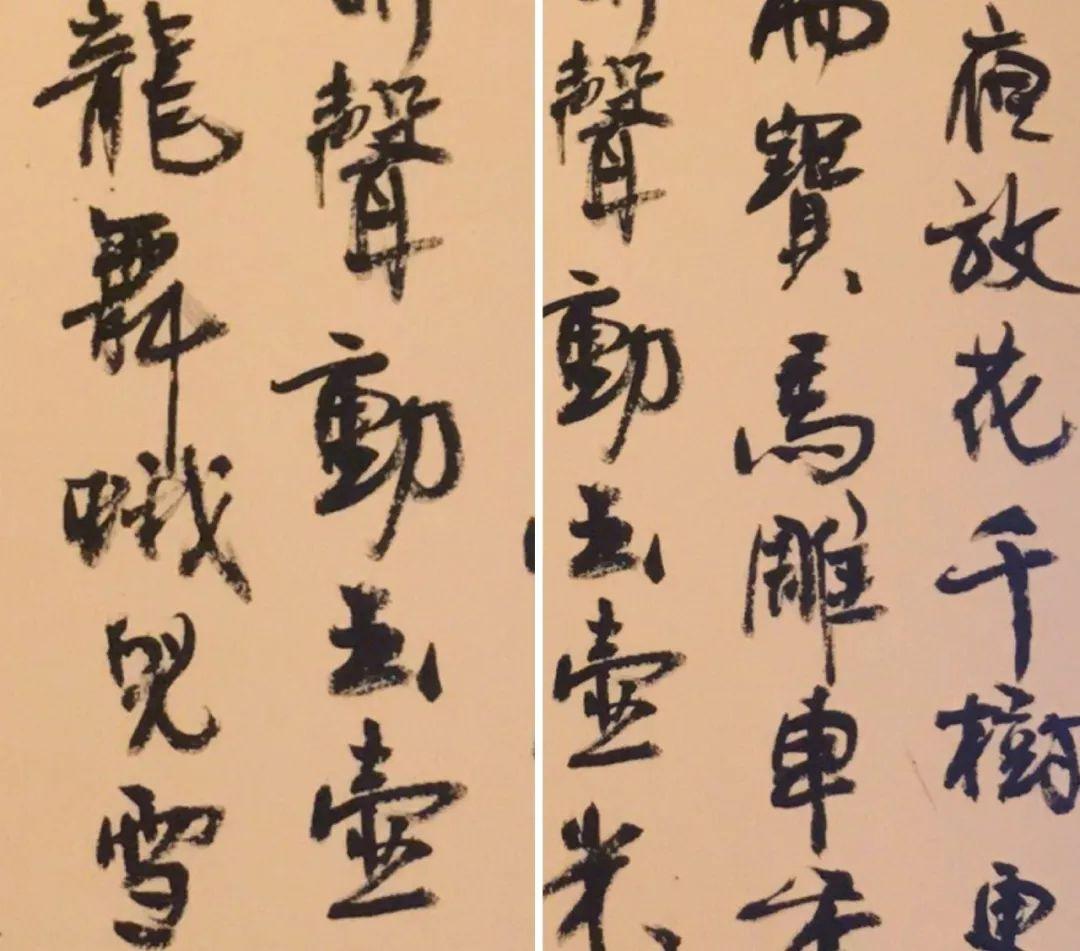 聲動玉壺
龍舞蛾兒雪
夜放花千樹更
寶馬雕車
聲動玉壺光